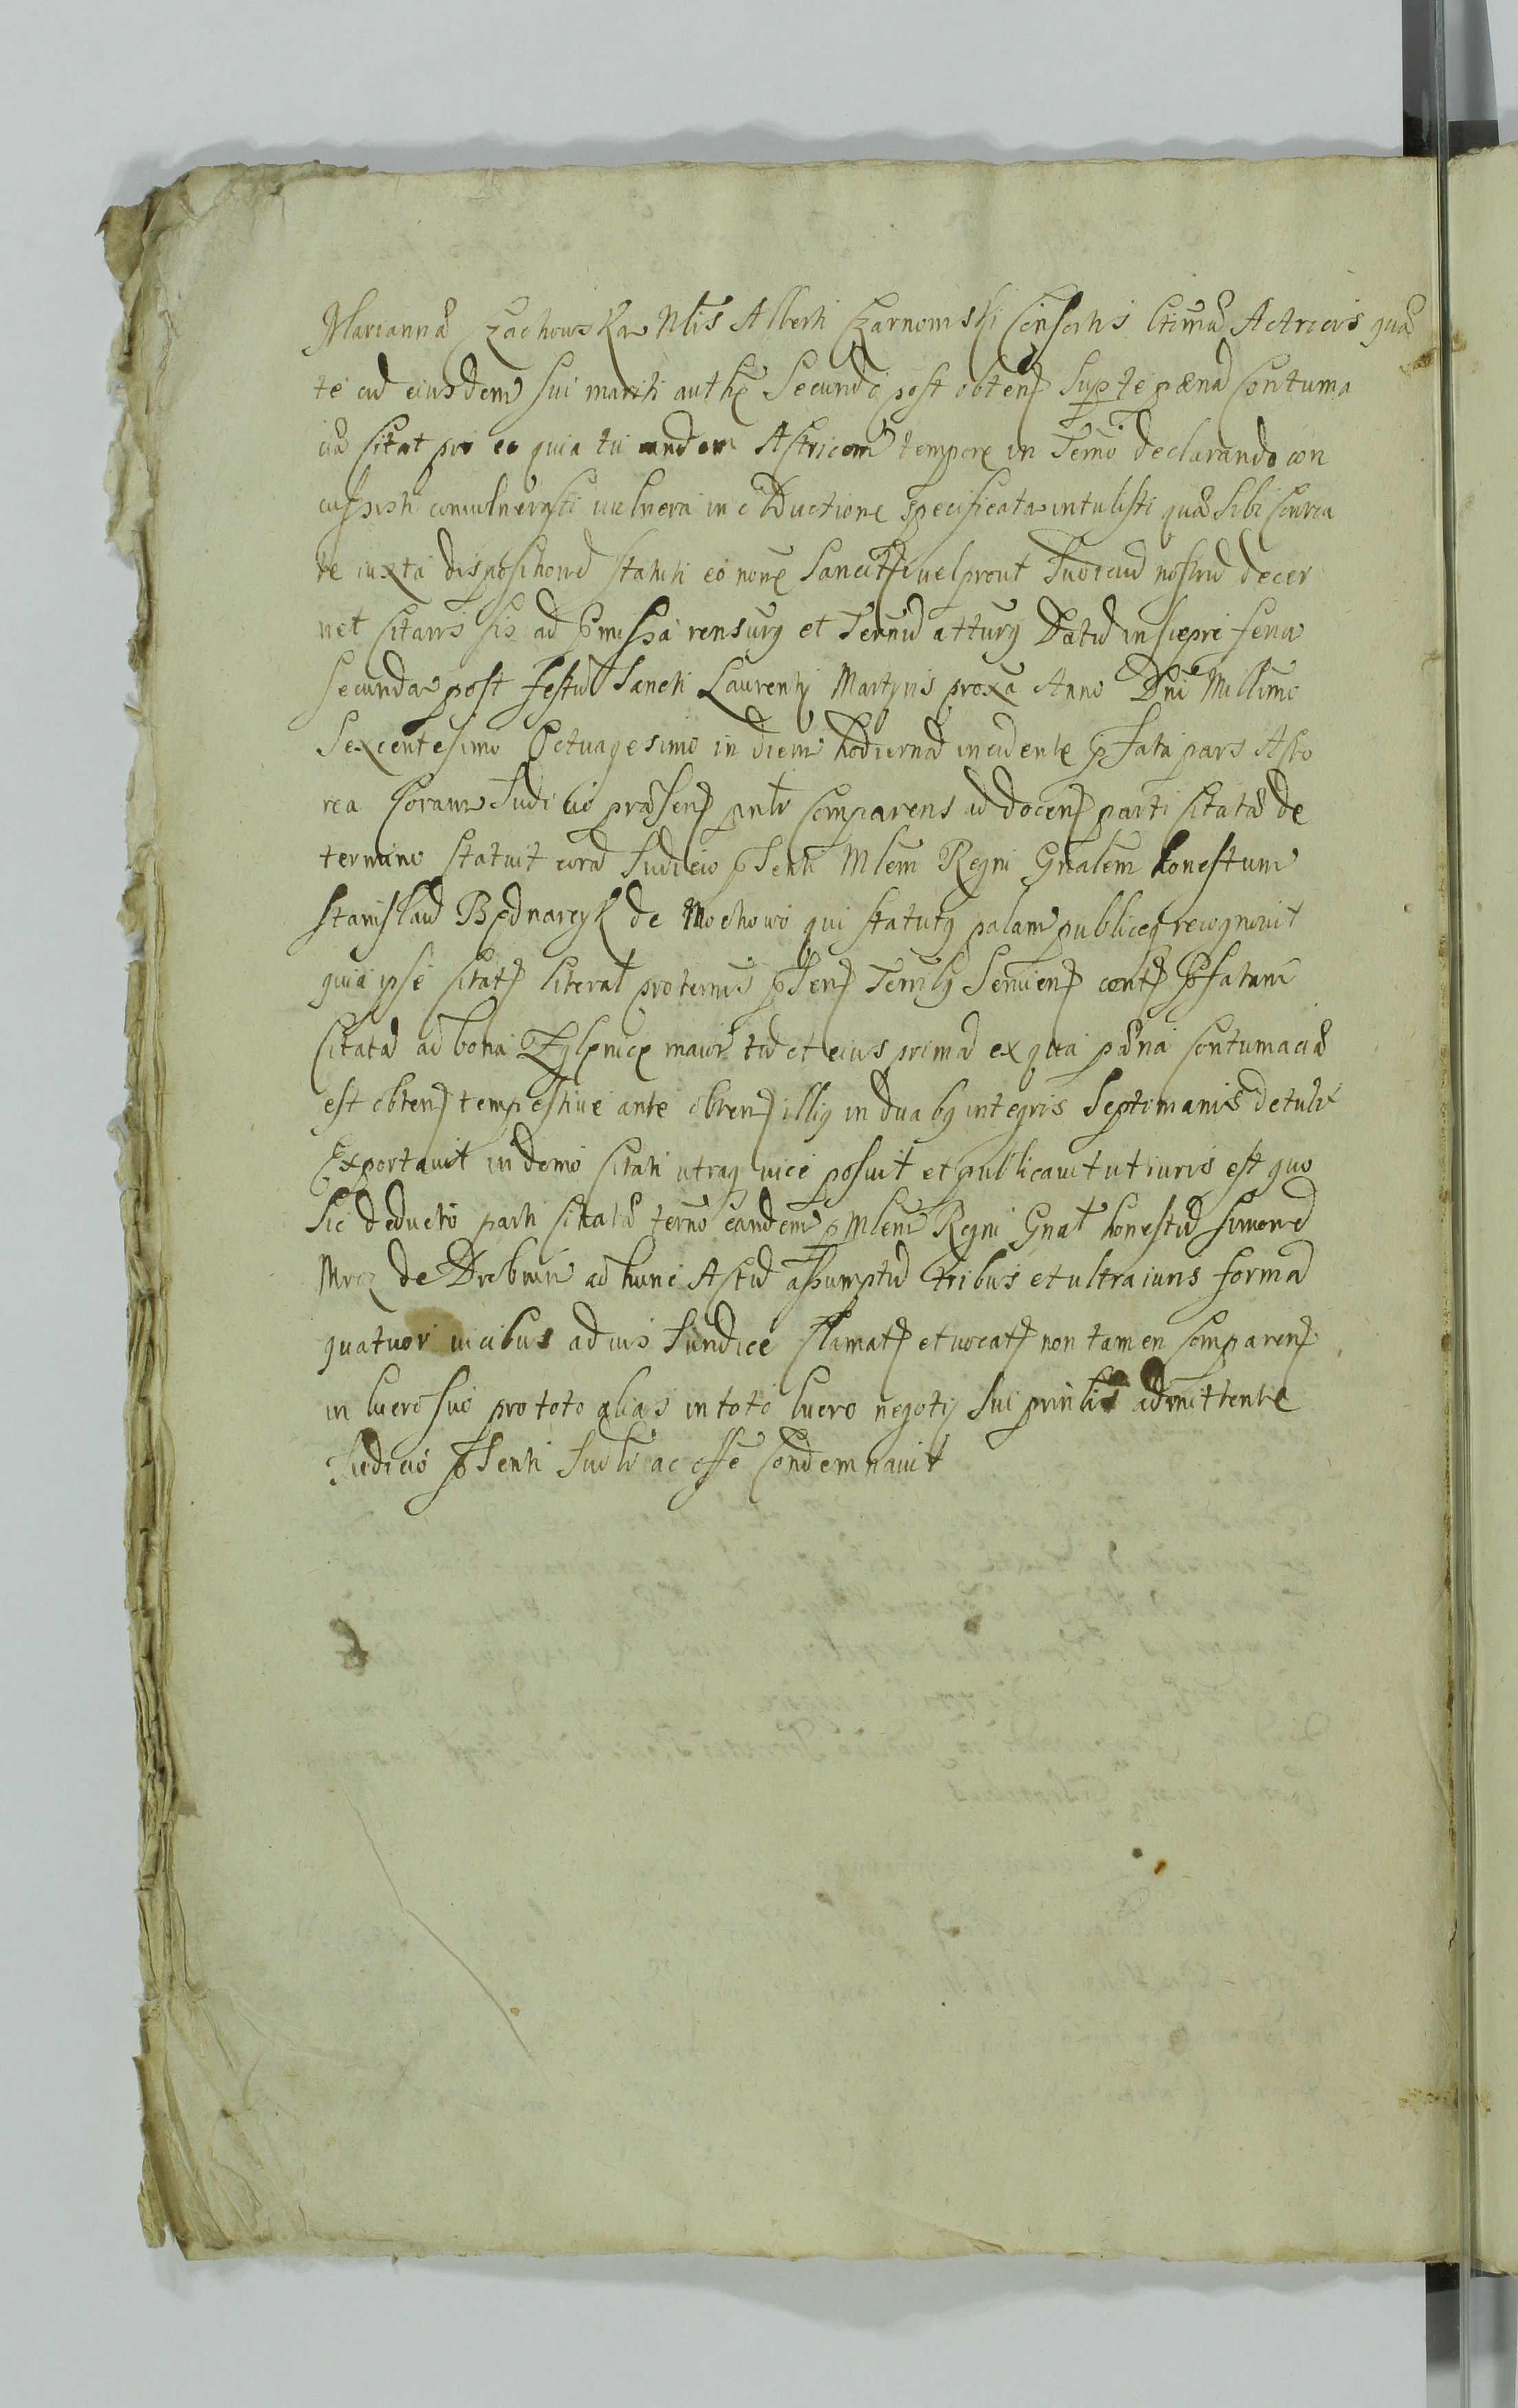 Marianna Czachowska Nlis Alberti Czarnomski Consortis ltima Actricis qua
te ad eiusdem sui mariti auth Secundo post obten sup te pæna Contuma
cia Citat pro eo quia tu eandem Actricem tempore in Termo declarando con
cussisti convulnerasti vulnera in obductione specificata intulisti qua sibi
te iuxta dispositione statuti eo nore Sancit vel prout Judiciu nostru decer
net Citaris sis ad pmissa rensurg et Termid atturg Datu in Siepre feria
secunda post festu Sancti Laurentij Martyris proxa Anno Dni Millimo
Sexcentesimo Octuagesimo in diem hodierna incidente pfata pars Acto
rea Coram Judicio præsen pntr Comparens ad docen parti Citatæ de
termino statuit cora Judicio psenti Mlem Regni Gnalem honestum
Stanislau Bednarczyk de Mochowo qui statutq palam publiceq recognovit
quia ipse Citat literat pro termis psen Terrilq Servien cont pfatam
Citata ad bona maior tu et eius prima ex qua pæna Contumaciæ
est obten tempestive ante obten illiq in duabq integris Septimanis detulit
Exportavit in domo Citati utraq vice posuit et publicavit ut iuris est quo
Sic deducto parti Citatæ termo eandem p Mlem Regni Gnal honestu Simone
Mroz de Drobnin ad hunc Actu assumptu tribus et ultra iuris forma
quatuor vicibus ad ius Jundice Clamat et vocat non tamen Comparen
in lucro suo pro toto alias in toto lucro negotij sui prinlis admittente
Judicio psenti Judlr ac offe Condemnavit